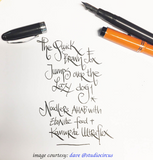 The Quick
Brown Fox
Jumps over the
Lazy dog!
Noodlers Ahab with
Ebonite feed &
Kanwrite Ultraflex
image courtesy: dave @studiocircus